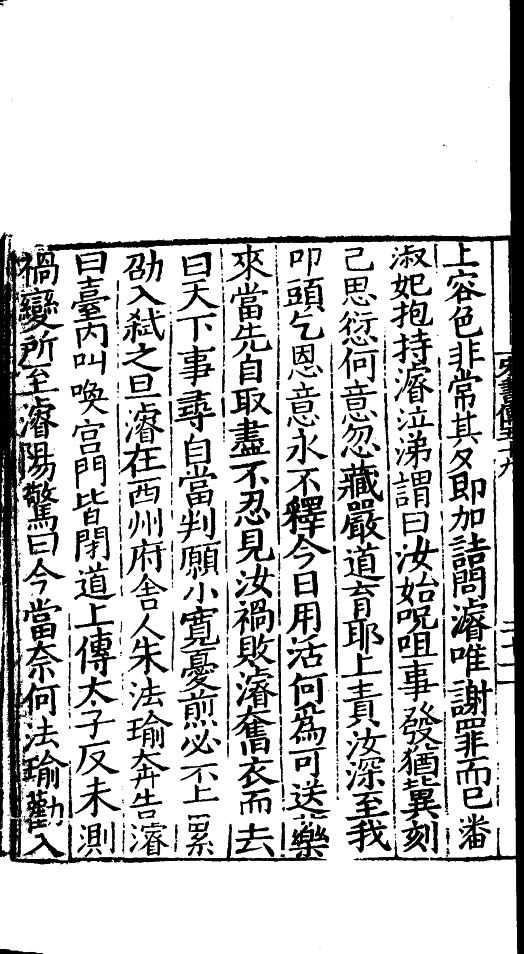 宋書傳五十九
上容色非常其夕即加詰問濬唯謝罪而已潘
淑妃抱持濬泣涕謂曰汝始呪咀事發猶冀刻
己思愆何意忽藏嚴道育耶上責汝深至我
叩頭乞恩意永不釋今日用活何爲可送藥
來當先自取盡不忍見汝禍敗濬奮衣而去
曰天下事尋自當判願小寬憂煎必不上累
劭入弑之旦濬在西州府舍人朱法瑜奔告濬
曰臺内叫喚宫門皆閉道上傳太子反未測
禍變所至濬陽驚曰今當奈何法瑜勸入